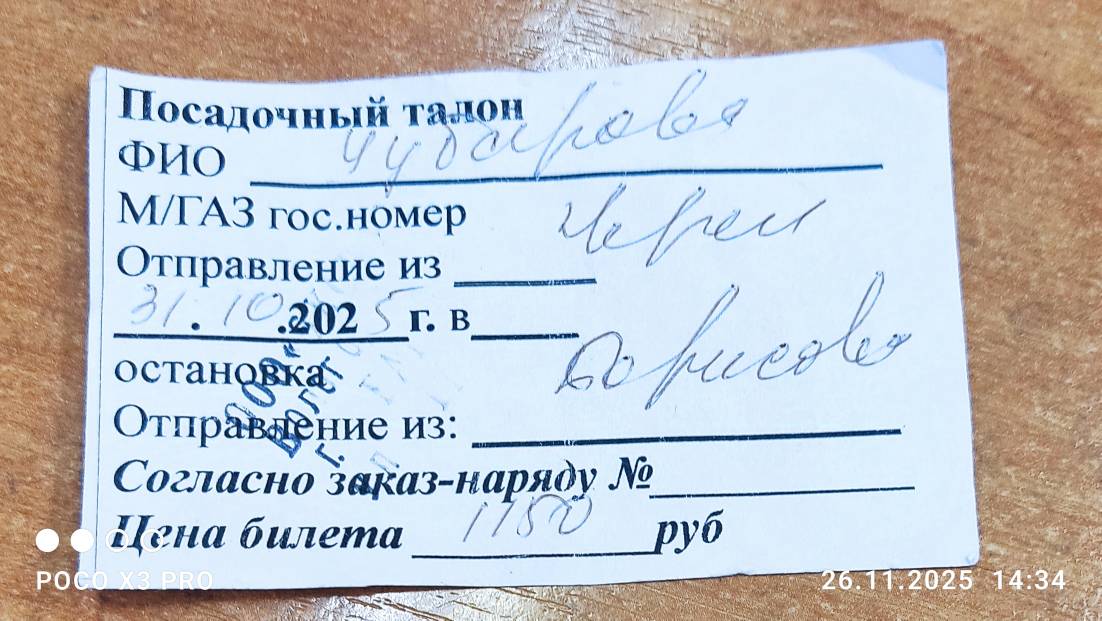 Посадочный талон
ФИО Чубарова
М/ГАЗ гос.номер
Отправление из
31.10.2025 г. в
остановка Борисово
Отправление из:
Согласно заказ-наряду №
Цена билета 1150 руб
POCO X3 PRO
26.11.2025 14:34